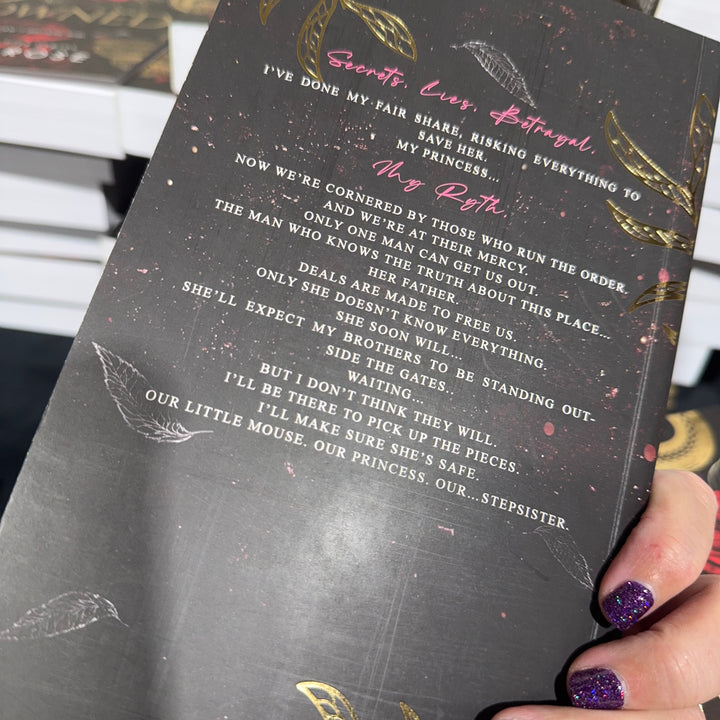 Secrets, Lies, Betrayal,
I'VE DONE MY FAIR SHARE, RISKING EVERYTHING TO
SAVE HER.
MY PRINCESS...
My Ryth
NOW WE'RE CORNERED BY THOSE WHO RUN THE ORDER.
AND WE'RE AT THEIR MERCY.
ONLY ONE MAN CAN GET US OUT.
THE MAN WHO KNOWS THE TRUTH ABOUT THIS PLACE...
HER FATHER.
DEALS ARE MADE TO FREE US.
ONLY SHE DOESN'T KNOW EVERYTHING.
SHE SOON WILL...
SHE'LL EXPECT MY BROTHERS TO BE STANDING OUT-
SIDE THE GATES..
WAITING...
BUT I DON'T THINK THEY WILL.
I'LL BE THERE TO PICK UP THE PIECES.
I'LL MAKE SURE SHE'S SAFE.
OUR LITTLE MOUSE. OUR PRINCESS. OUR...STEPSISTER.